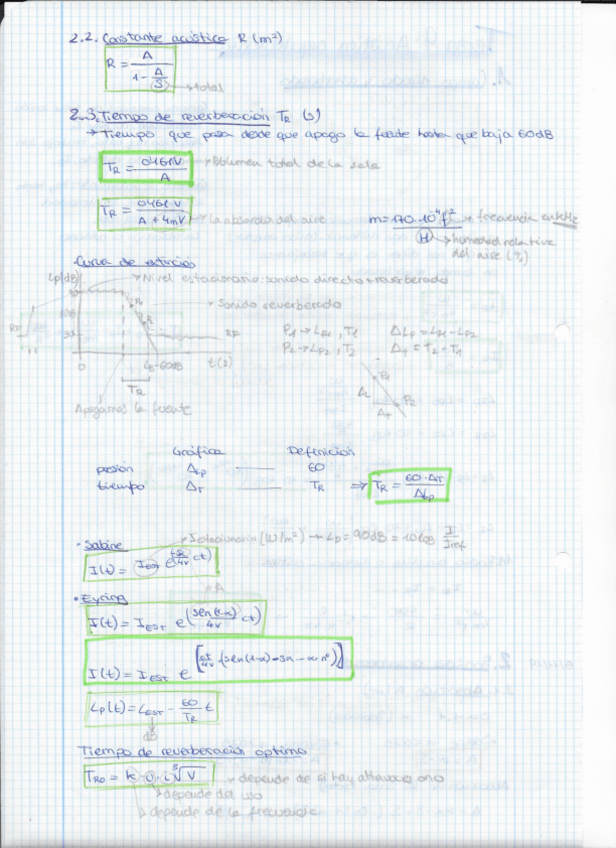 2.2. Constante acústica R (m²)
R = A / (1 - A/S) → total
2.3. Tiempo de reverberación TR (s)
→ Tiempo que pasa desde que apago la fuente hasta que baja 60dB
TR = 0'161·V / A → Volumen total de la sala
TR = 0'161·V / (A + 4mV) → La absorbida del aire
m = 170·10⁻⁴ f² / H → frecuencia en kHz
→ humedad relativa
del aire (%)
Curva de extinción
Lp(dB) → Nivel estacionario: sonido directo + reverberado
→ Sonido reverberado
P1 → LP1, T1 ΔLp = LP1 - LP2
P2 → LP2, T2 Δt = T2 - T1
RF
P1
P2
RF
0
t(s)
TR
Apagamos la fuente
P1
P2
ΔL
ΔT
Gráfica Definición
presión ΔLp — 60
tiempo ΔT — TR ⇒ TR = 60·ΔT / ΔLp
· Sabine → Estacionaria (W/m²) → Lp = 90dB = 10 log I/Iref
I(t) = IEST
· Eyring
I(t) = IEST e
I(t) = IEST e
Lp(t) = LEST - 60/TR t
dB
Tiempo de reverberación optimo
TRO = k·υ·i ∛V → depende de si hay altavoces o no
→ depende del uso
→ depende de la frecuencia